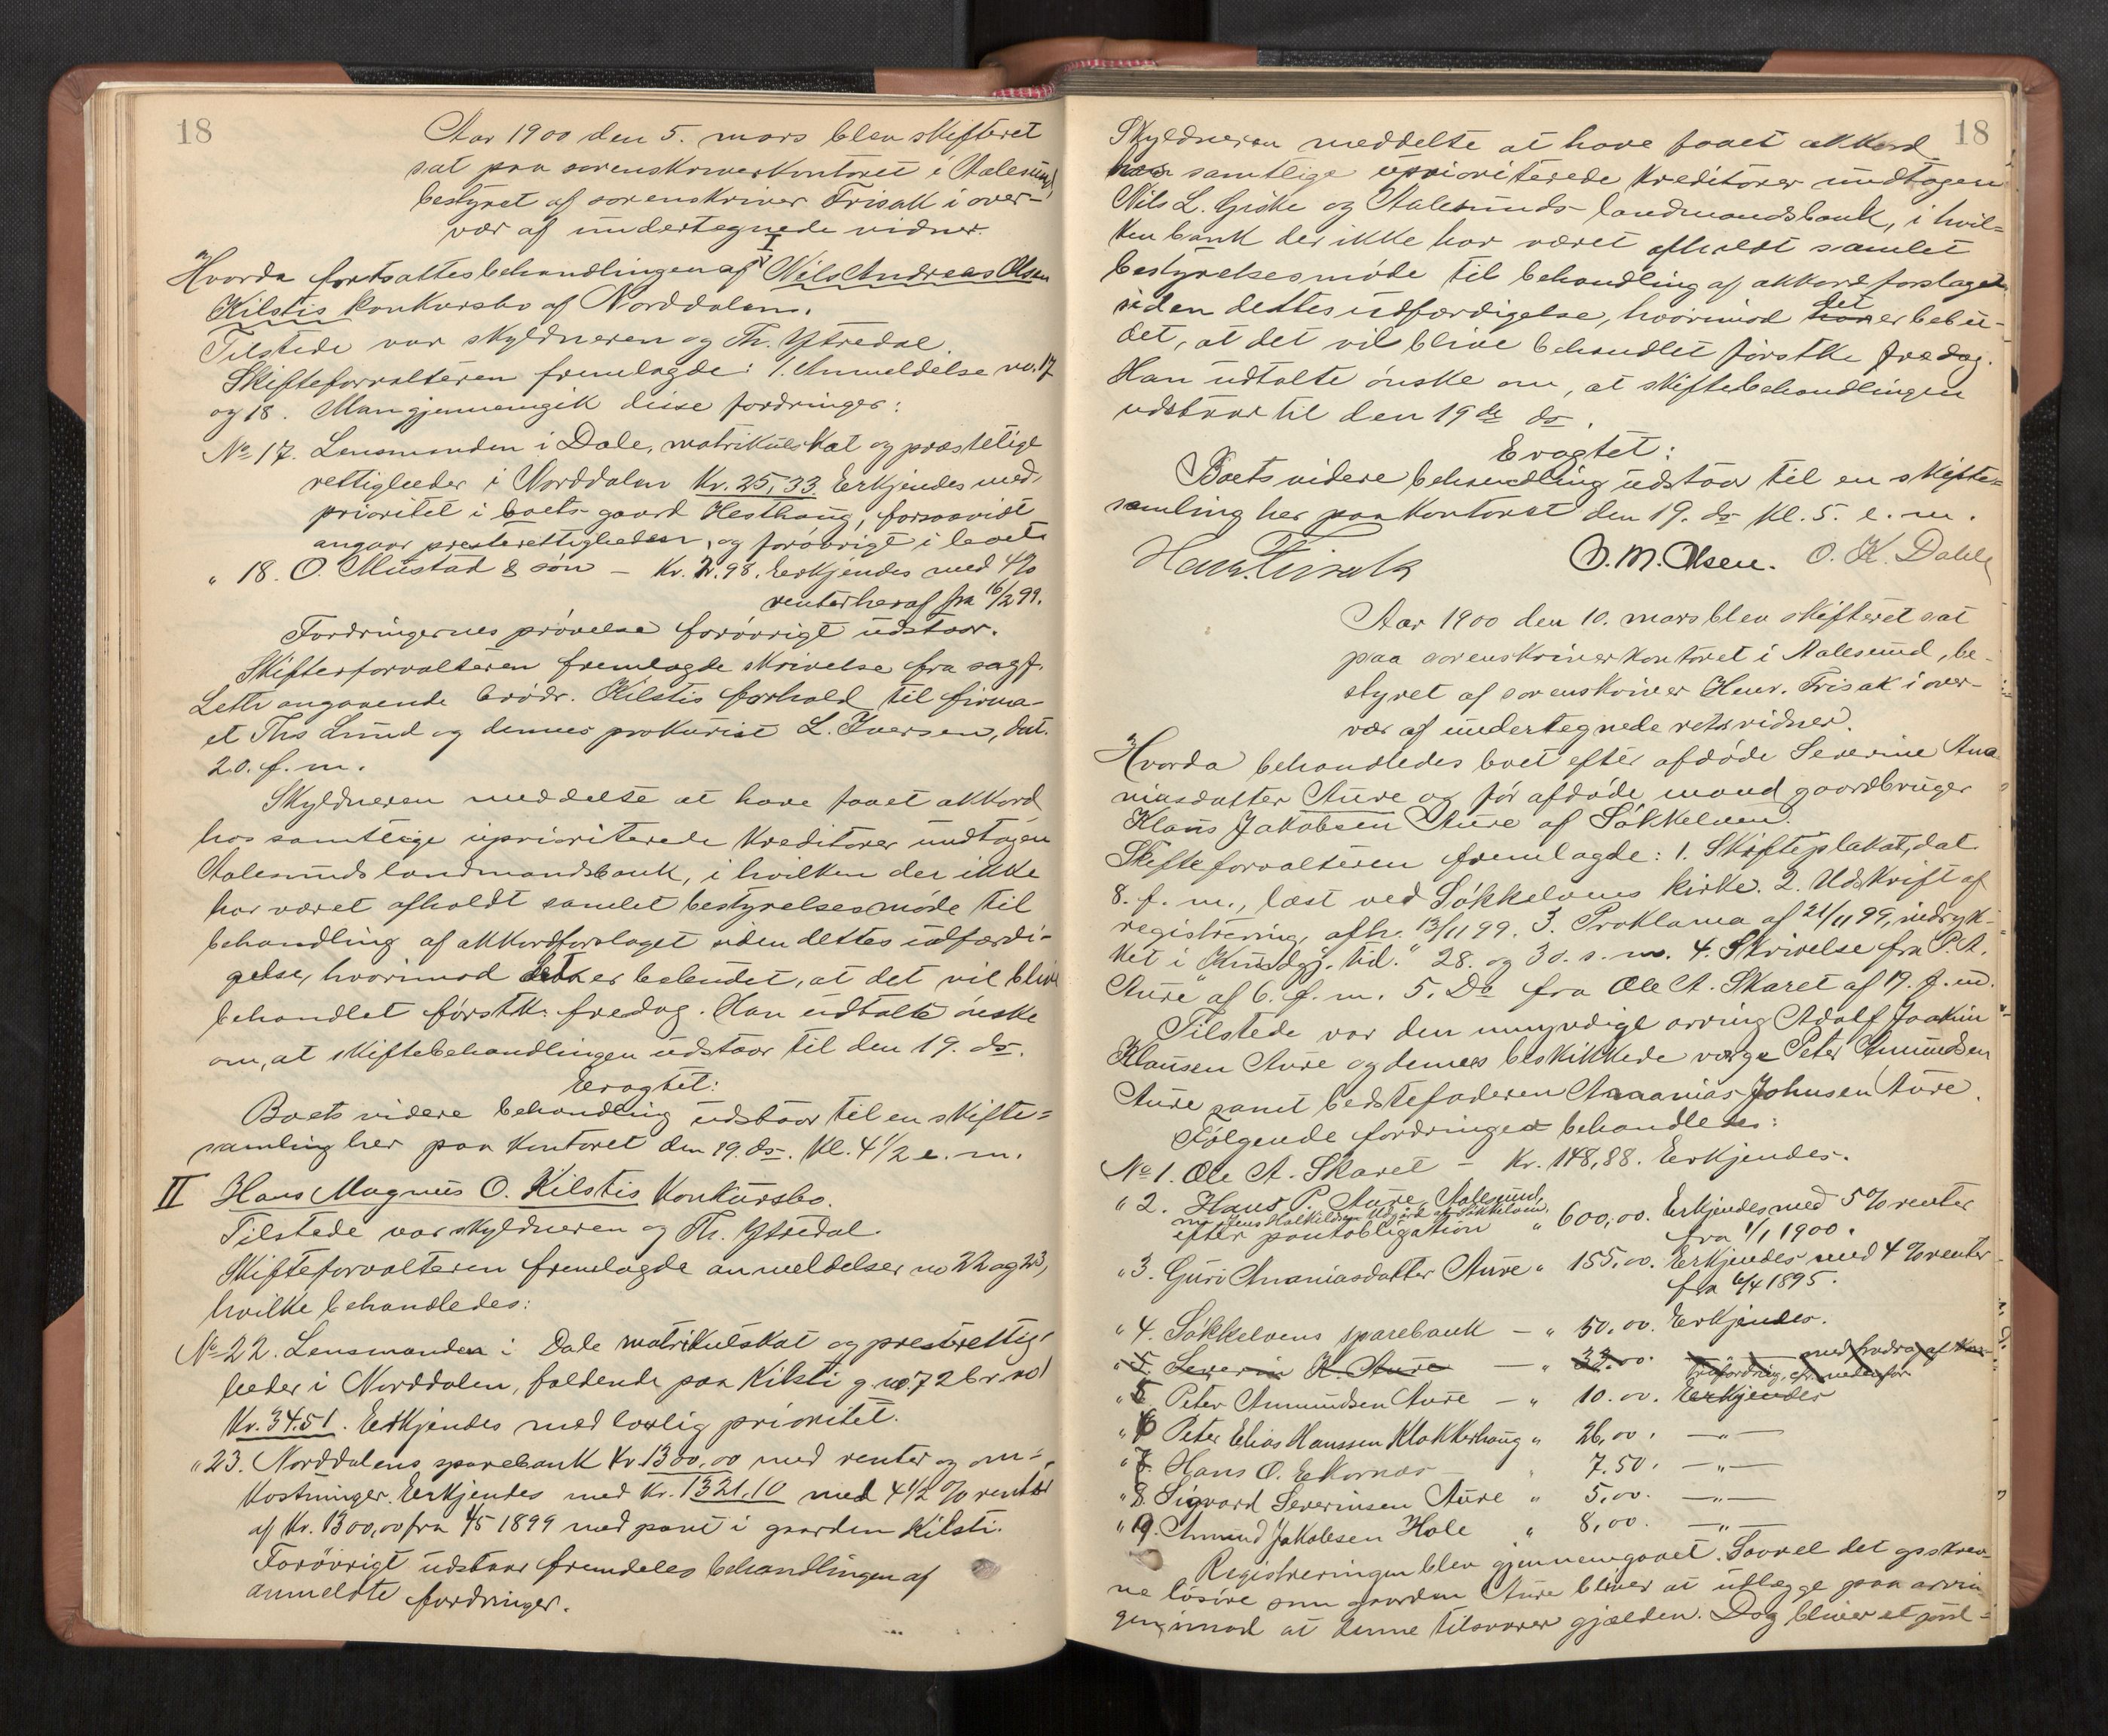 18
Aar 1900 den 5. mars blev skifteret
sat paa sorenskriverkontoret i Aalesund,
bestyret af sorenskriver Frisak i over-
vær af undertegnede vidner.
I
Hvorda fortsattes behandlingen af Nils Andreas Olsen
Kilstis konkursbo af Norddalen.
Tilstede var skyldneren og Th. Ytredal
Skifteforvalteren fremlagde: 1. Anmeldelse no. 17
og 18. Man gjennemgik disse fordringer:
No 17. Lensmanden i Dale, matrikulskat og præstelige
rettigheder i Norddalen Kr. 25,33 Erkjendes med
prioritet i boets gaard Hesthaug, forsaavidt
angaar presterettigheden, og forøvrigt i boet
" 18. O. Mustad & søn - Kr. 2.98. Erkjendes med 4%
renter heraf fra 16/2 99.
Fordringernes prøvelse forøvrigt udstaar.
Skifterforvalteren fremlagde skrivelse fra sagf.
Leth angaaende brødr. Kilstis forhold til firma-
et Ths Lund og dennes prokurist L. Iversen, dat.
20. f. m.
Skyldneren meddelte at have faaet akkord
hos samtlige uprioriterede kreditorer undtagen
Aalesunds landmandsbank, i hvilken der ikke
har været afholdt samlet bestyrelsesmøde til
behandling af akkordforslaget siden dettes udfærdi-
gelse, hvorimod det er bebudet, at det vil blive
behandlet førstk. fredag. Han udtalte ønske
om, at skiftebehandlingen udstaar til den 19. ds.
Eragtet:
Boets videre behandling udstaar til en skifte=
samling her paa kontoret den 19. ds. Kl. 4 1/2 e. m.
II Hans Magnus O. Kilstis Konkursbo.
Tilstede var skyldneren og Th. Ytredal.
Skifteforvalteren fremlagde anmeldelser no 22 og 23,
hvilke behandledes:
No 22. Lensmanden i Dale matrikulskat og presterettig-
heder i Norddalen, faldende paa Kilsti g. no. 72 br. no 1
Kr. 34.51. Erkjendes med lovlig prioritet.
" 23. Norddalens sparebank Kr 1300,00 med renter og om=
kostninger. Erkjendes med Kr. 1321.10 med 4 1/2 % renter
af Kr. 1300,00 fra 4/5 1899 med pant i gaarden Kilsti.
Forøvrigt udstaar fremdeles behandlingen af
anmeldte fordringer.
18
Skyldneren meddelte at have faaet akkord
hos samtlige uprioriterede kreditorer undtagen
Nils L. Giske og Aalesunds landmandsbank, i hvil=
ken bank der ikke har været afholdt samlet
bestyrelsesmøde til behandling af akkordforslaget
siden dettes udfærdigelse, hvorimod det er bebu-
det, at det vil blive behandlet førstk. fredag.
Han udtalte ønske om, at skiftebehandlingen
udstaar til den 19de ds.
Eragtet:
Boets videre behandling udstaar til en skifte=
samling her paa kontoret den 19. ds Kl. 5. e. m.
Henr. Frisak O. M. Olsen. O. K. Dahle
Aar 1900 den 10. mars blev skifteret sat
paa sorenskriverkontoret i Aalesund, be-
styret af sorenskriver Henr. Frisak i over-
vær af undertegnede retsvidner.
Hvorda behandledes boet efter afdøde Severine Ana
niasdatter Aure og før afdøde mand gaardbruger
Klaus Jakobsen Aure af Søkkelven.
Skifteforvalteren fremlagde: 1. Skifteplakat, dat.
8. f. m., læst ved Søkkelvens kirke. 2. Udskrift af
registrering, afh. 13/11 99. 3. Proklama af 21/11 99, indryk-
ket i "Kundgj. tid." 28. og 30. s. m. 4. Skrivelse fra P. A.
Aure af 6. f. m. 5. Do fra Ole A. Skaret af 19. f. m.
Tilstede var den umyndige arving Adolf Joakim
Klausen Aure og dennes beskikkede værge Peter Amundsen
Aure samt bedstefaderen Ananias Johnsen Aure.
Følgende fordringer behandledes:
No 1. Ole A. Skaret - Kr. 148,88. Erkjendes.
" 2. Hans P. Aure, Aalesund,
efter pantobligation " 600,00. Erkjendes med 5% renter
fra 1/1 1900.
" 3. Guri Ananiasdatter Aure " 155,00. Erkjendes med 4% renter
fra 6/4 1895.
" 4. Søkkelvens sparebank - " 50,00. Erkjendes.
" 5. Severin K. Aure - " 32.00. - " - med fradrag af
" 5 Peter Amundsen Aure - " 10.00. Erkjendes
" 6 Peter Elias Hanssen Klokkerhaug " 26,00. - " -
" 7. Hans O. Ekornæs " 7.50. - " -
" 8. Sigvard Severinsen Aure " 5,00. - " -
" 9. Amund Jakobsen Hole " 8,00. - " -
Registreringen blev gjennemgaaet. Saavel det opskrev-
ne løsøre som gaarden Aure bliver at utlægge paa arvin
gen, imod at denne tilsvarer gjælden. Dog bliver et